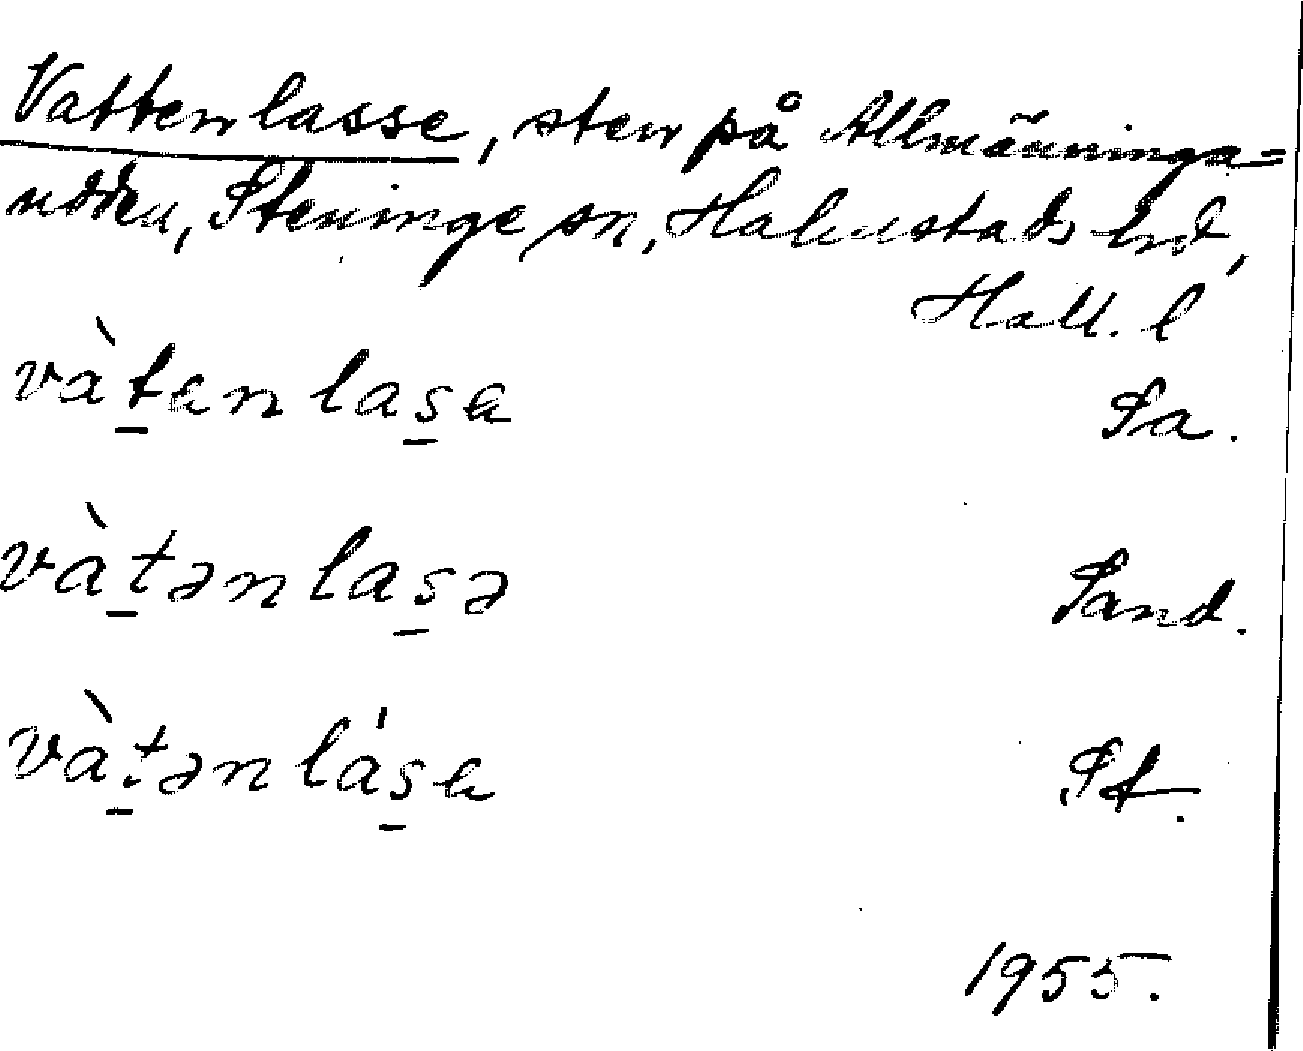 Vattenlasse, sten på Allmänninga=
udden, Steninge sn, Halmstads hd,
Hall. l
vàt̲enlas̲e Sa.
vàt̲ənlas̲ə Sand.
vàt̲ənlás̲e St.
1955.